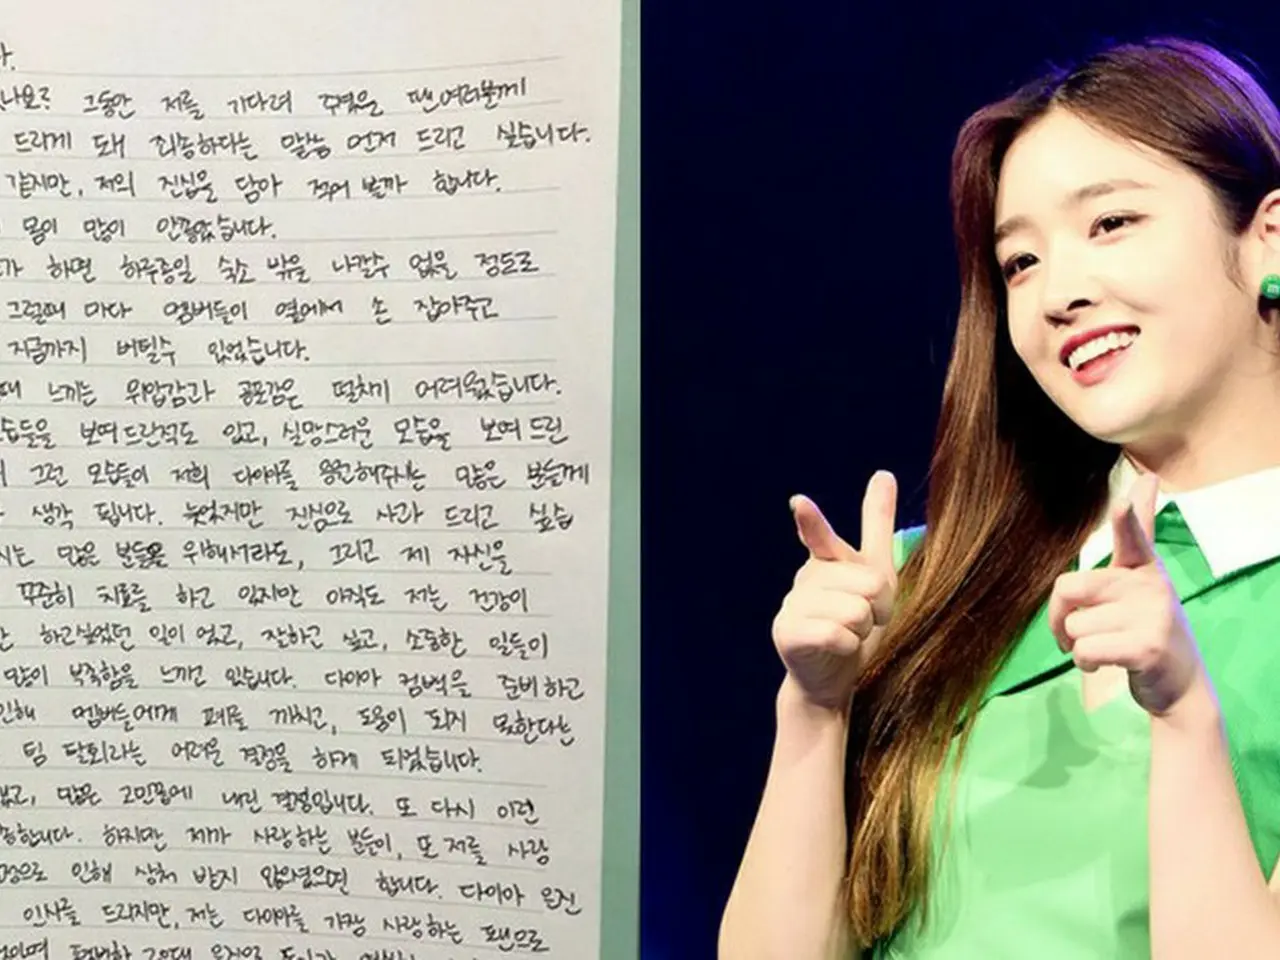 다.
있나요? 그동안 저를 기다려 주셨을 팬 여러분께
드리게 돼 죄송하다는 말씀 먼저 드리고 싶습니다.
같지만, 저의 진심을 담아 적어 볼까 합니다.
몸이 많이 안좋았습니다.
가 하면 하루종일 숙소 밖을 나갈수 없을 정도로
그럴때 마다 멤버들이 옆에서 손 잡아주고
지금까지 버틸수 있었습니다.
때 느끼는 위압감과 공포감은 떨치기 어려웠습니다.
모습들을 보여드린적도 있고, 실망스러운 모습을 보여 드린
그런 모습들이 저희 다이아를 응원해주시는 많은 분들께
생각 됩니다. 늦었지만 진심으로 사과 드리고 싶습
시는 많은 분들을 위해서라도, 그리고 제 자신을
꾸준히 치료를 하고 있지만 아직도 저는 건강이
하고싶었던 일이 었고, 잘하고 싶고, 소중한 일들이
많이 부족함을 느끼고 있습니다. 다이아 컴백을 준비하고
인해 멤버들에게 폐를 끼치고, 도움이 되지 못한다는
팀 탈퇴라는 어려운 결정을 하게 되었습니다.
많은 고민끝에 내린 결정입니다. 또 다시 이런
송합니다. 하지만 제가 사랑하는 분들이, 또 저를 사랑
정으로 인해 상처 받지 않으셨으면 합니다. 다이아 은진
인사를 드리지만, 저는 다이아를 가장 사랑하는 팬으로
평범한 20대